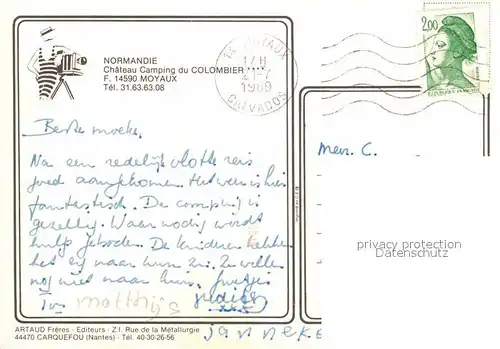 NORMANDIE
Château Camping du COLOMBIER
F. 14590 MOYAUX
Tél. 31.63.63.08
14 MOYAUX
17 H
21-7
1989
CALVADOS
2,00
REPUBLIQUE FRANÇAISE
Beste moeke,
Na een redelijk vlotte reis
goed aangekomen. Het weer is hier
fantastisch. De camping is
gezellig. Waar nodig wordt
hulp geboden. De kinderen hebben
het erg naar hun zin. Ze willen
nog niet naar huis. Groetjes
Ton matthijs Judith
xxx
janneke
Mevr. C.
privacy protection
Datenschutz
ARTAUD Frères - Editeurs - Z.I. Rue de la Métallurgie
44470 CARQUEFOU (Nantes) - Tél. 40-30-26-56